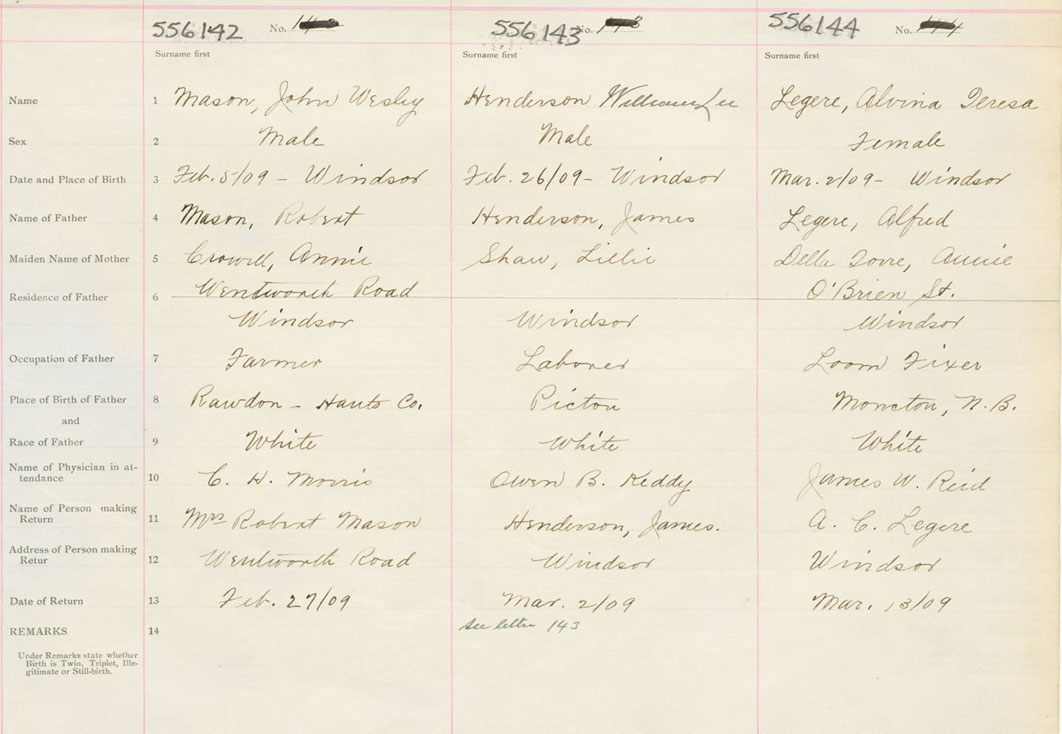 556142 No. 556143 No. 143 556144 No. 144
Surname first Surname first Surname first
Name 1 Mason, John Wesley Henderson William Lee Legere, Alvina Teresa
Sex 2 Male Male Female
Date and Place of Birth 3 Feb. 5/09 - Windsor Feb. 26/09 - Windsor Mar. 2/09 - Windsor
Name of Father 4 Mason, Robert Henderson, James Legere, Alfred
Maiden Name of Mother 5 Crowell, Annie Shaw, Lillie Della Torre, Annie
Residence of Father 6 Wentworth Road O'Brien St.
Windsor Windsor Windsor
Occupation of Father 7 Farmer Laborer Loom Fixer
Place of Birth of Father 8 Rawdon - Hants Co. Pictou Moncton, N.B.
and
Race of Father 9 White White White
Name of Physician in at-
tendance 10 C. H. Morris Owen B. Keddy James W. Reid
Name of Person making
Return 11 Mrs Robert Mason Henderson, James. A. C. Legere
Address of Person making
Retur 12 Wentworth Road Windsor Windsor
Date of Return 13 Feb. 27/09 Mar. 2/09 Mar. 13/09
REMARKS 14 see letter 143
Under Remarks state whether
Birth is Twin, Triplet, Ille-
gitimate or Still-birth.